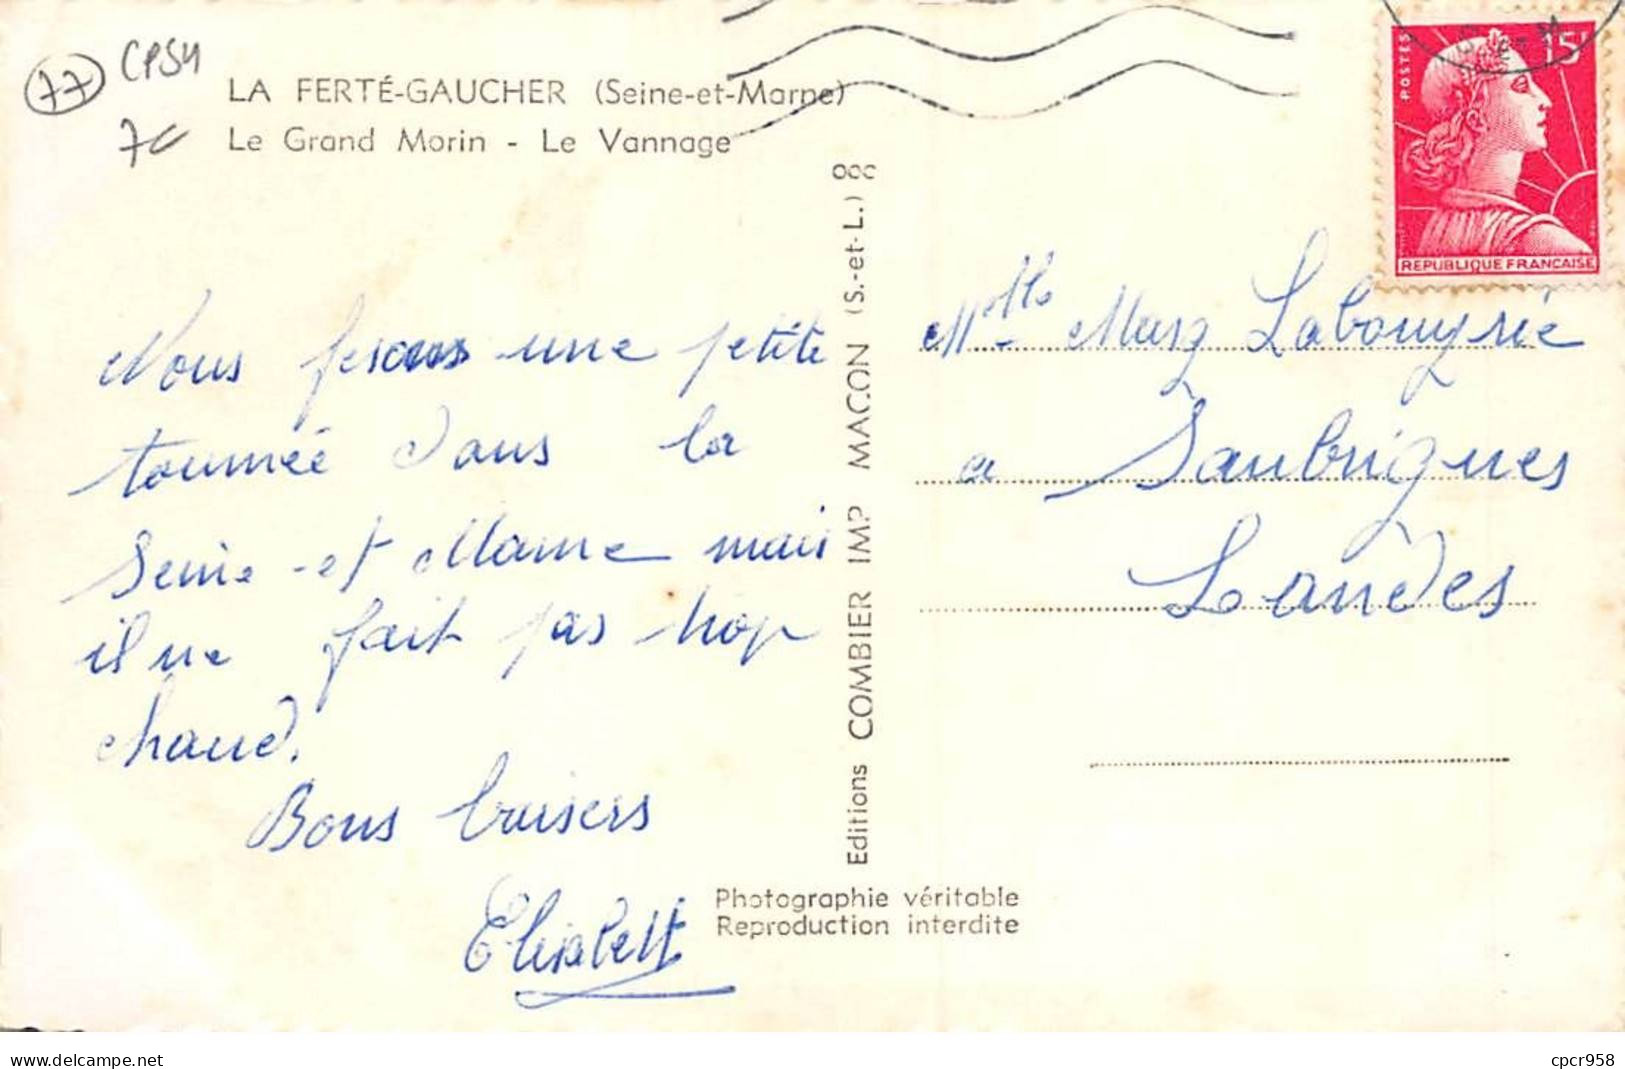 77
CPSM
LA FERTÉ-GAUCHER (Seine-et-Marne)
Le Grand Morin - Le Vannage
Nous fesons une petite
tournée dans la
Seine-et Marne mais
il ne fait pas trop
chaud.
Bons baisers
Elisabeth
Editions COMBIER IMP MACON (S.-et-L.)
Photographie véritable
Reproduction interdite
POSTES
15F
REPUBLIQUE FRANÇAISE
Labouyrie
a Saubrigues
Landes
www.delcampe.net
cpcr958